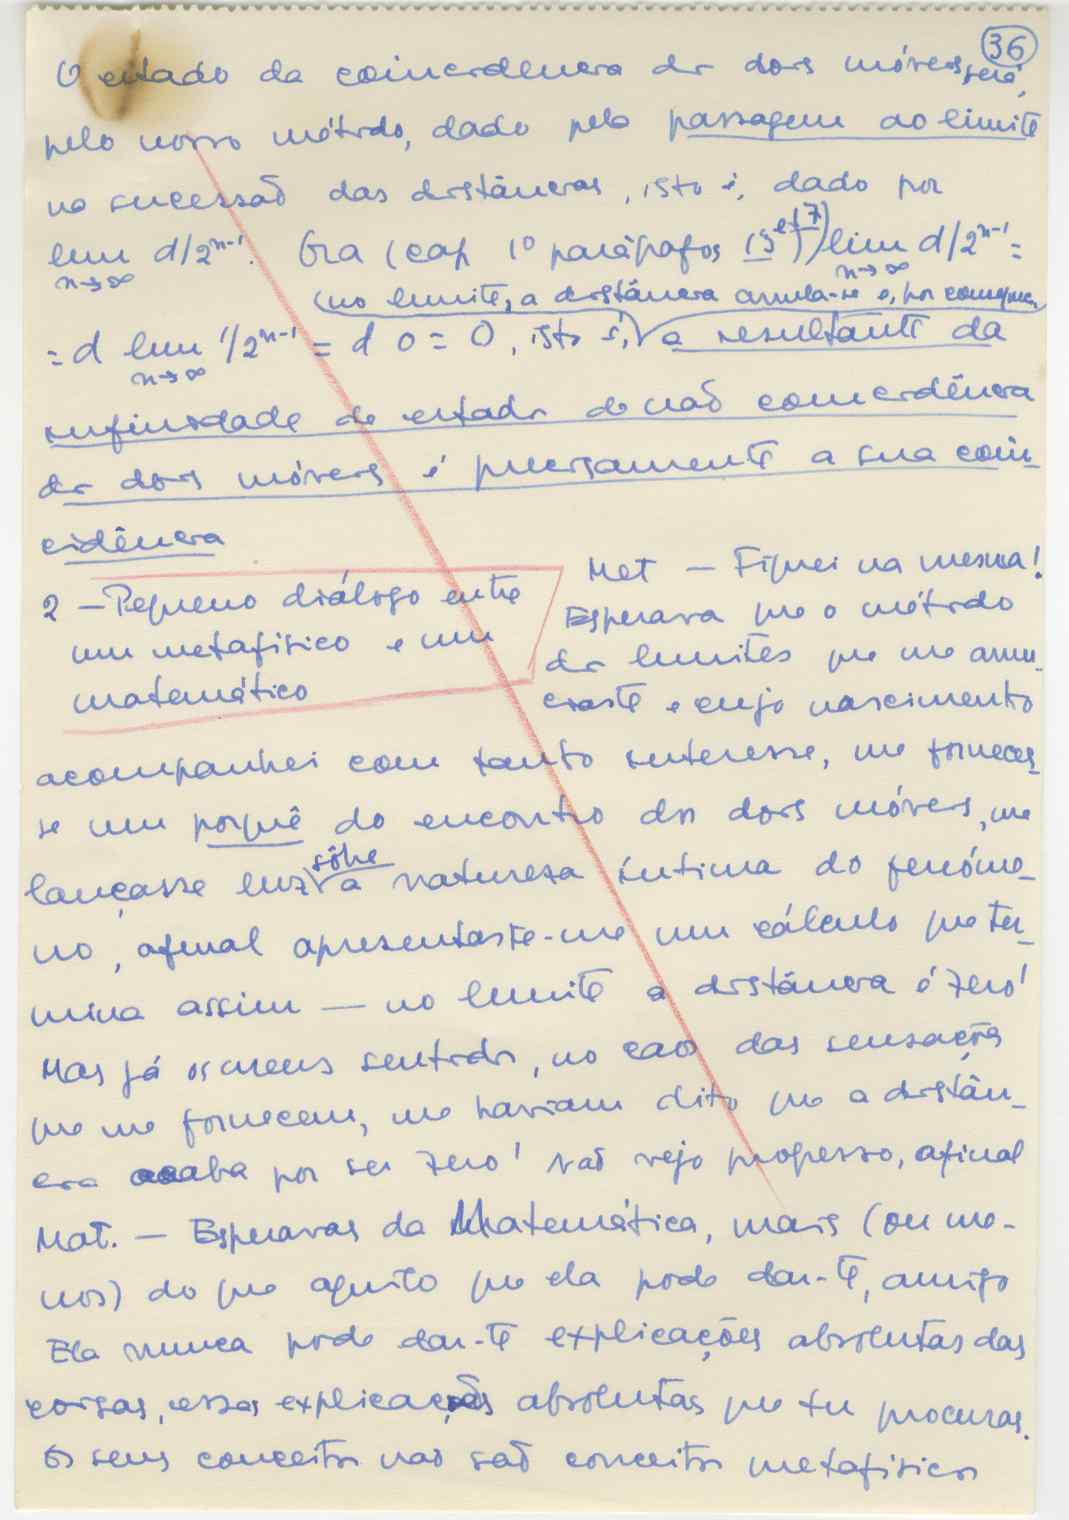 36
O estado da coincidência de dois móveis será,
pelo nosso método, dado pela passagem ao limite
na sucessão das distâncias, isto é, dado por
lim d/2ⁿ⁻¹. Ora (cap 1º parágrafos 15 e 17) lim d/2ⁿ⁻¹ =
n→∞ n→∞
(no limite, a distância anula-se e, por conseguin.
= d lim 1/2ⁿ⁻¹ = d 0 = 0, isto é, a resultante da
n→∞
infinidade de estados de não coincidência
de dois móveis é precisamente a sua coin-
cidência
2 — Pequeno diálogo entre
um metafísico e um
matemático
Met — Fiquei na mesma!
Esperava que o método
de limites que me anun-
ciaste e cujo nascimento
acompanhei com tanto interesse, me forneces-
se um porquê do encontro dos dois móveis, me
lançasse luz sôbre a natureza íntima do fenóme-
no, afinal apresentaste-me um cálculo que ter-
mina assim — no limite a distância é zero!
Mas já os meus sentidos, no caos das sensações
que me fornecem, me haviam dito que a distân-
cia acaba por ser zero! Não vejo progresso, afinal
Mat. — Esperavas da Matemática, mais (ou me-
nos) do que aquilo que ela pode dar-te, amigo
Ela nunca pode dar-te explicações absolutas das
coisas, essas explicações absolutas que tu procuras.
Os seus conceitos não são conceitos metafísicos